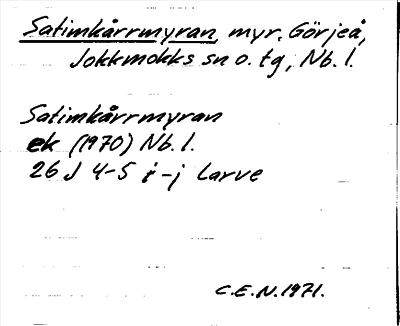 Satimkårrmyran, myr, Görjeå,
Jokkmokks sn o. tg, Nb. l.
Satimkårrmyran
ek (1970) Nb. l.
26 J 4-5 i-j Larve
C.E.N. 1971.